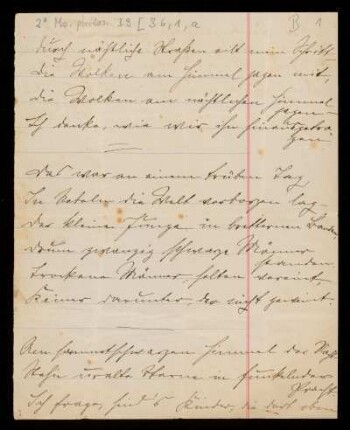 2° Ms. philos. 39 [36,1,a
B 1
Durch nächtliche Straßen eilt mein Schritt
Die Wolken am Himmel jagen mit,
die Wolken am nächtlichen Himmel
jagen –
Ich denke, wie wir ihn hinausgetra-
gen
Das war an einem trüben Tag,
In Nebeln die Welt verborgen lag –
Der kleine Junge in bretternen
drum zwanzig schwarze Männer
standen
Trockene Männer, selten vereint,
Keiner darunter, der nicht geweint.
Am sammetschwarzen Himmel der Nacht
Stehn uralte Sterne in funkelnder
Pracht.
Ich frage, sind's Kinder, die dort oben